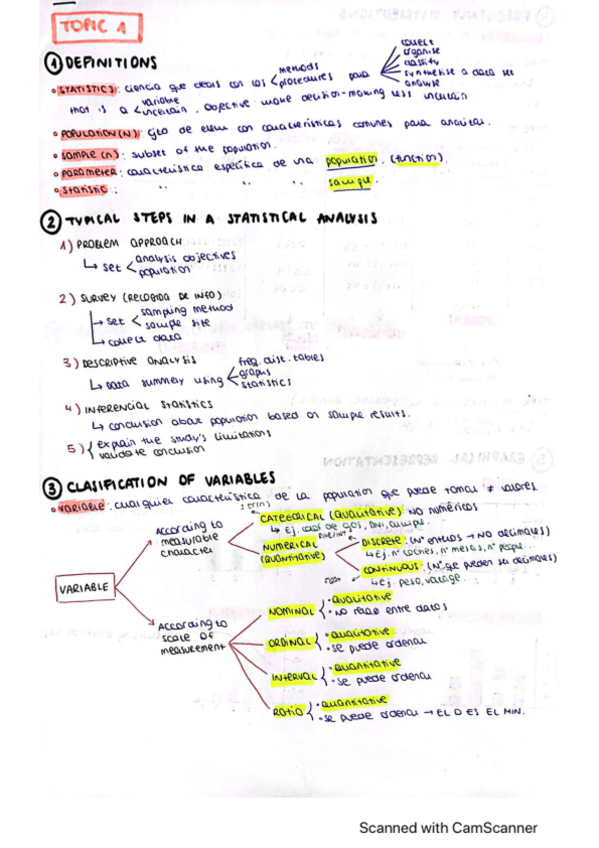 TOPIC 1
① DEFINITIONS
• STATISTICS: ciencia que desas con los < methods / procedures para < collect / organise / classify / synthetise / analyse a data set
that is a < variable / uncertain. Objective: make decision-making less uncertain
• POPULATION (N): cjto de elem con características comunes para analizar.
• SAMPLE (n): subset of the population.
• PARAMETER: característica específica de una population. (function).
• Statistic: " " " " sample.
② TYPICAL STEPS IN A STATISTICAL ANALYSIS
1) PROBLEM APPROACH
↳ set < analysis objectives / population
2) SURVEY (RECOGIDA DE INFO)
→ set < sampling method / sample size
→ collect data
3) DESCRIPTIVE ANALYSIS
↳ Data summary using < freq. dist. tables / graphs / statistics
4) INFERENCIAL STATISTICS
↳ conclusion about population based on sample results.
5) { explain the study's limitations
validate conclusion
③ CLASIFICATION OF VARIABLES
• VARIABLE: cualquier característica de la population que puede tomar ≠ valores.
VARIABLE
According to measurable character
CATEGORICAL (Qualitative) NO numéricos
↳ Ej. color de ojos, DNI,
NUMERICAL (QUANTITATIVE)
DISCRETE: (Nº enteros → NO decimales)
↳ Ej. nº coches, nº mesas, nº
CONTINUOUS: (Nº que pueden ser decimales)
↳ ej. peso,
According to scale of measurement
NOMINAL { • Qualitative
• No relac entre datos
ORDINAL { • Qualitative
• se puede ordenar
INTERVAL { • Quantitative
• se puede ordenar
RATIO { • Quantitative
• se puede ordenar → EL 0 ES EL MIN.
Scanned with CamScanner